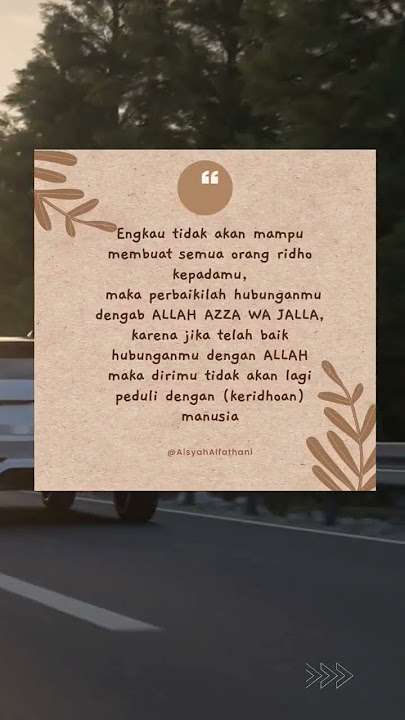 Engkau tidak akan mampu
membuat semua orang ridho
kepadamu,
maka perbaikilah hubunganmu
dengab ALLAH AZZA WA JALLA,
karena jika telah baik
hubunganmu dengan ALLAH
maka dirimu tidak akan lagi
peduli dengan (keridhoan)
manusia
@AisyahAlfathani